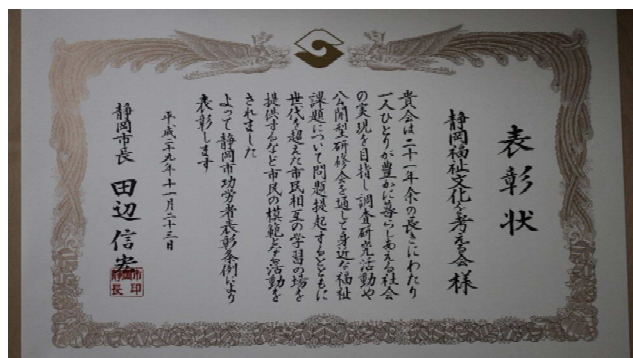 表彰状
静岡福祉文化を考える会 様
貴会は二十一年余の長きにわたり
一人ひとりが豊かに暮らしあえる社会
の実現を目指し調査研究活動や
公開型研修会を通して身近な福祉
課題について問題提起するとともに
世代を超えた市民相互の学習の場を
提供するなど市民の模範となる活動を
されました
よって静岡市功労者表彰条例により
表彰します
平成二十九年十一月二十三日
静岡市長 田辺信宏
静岡市長印